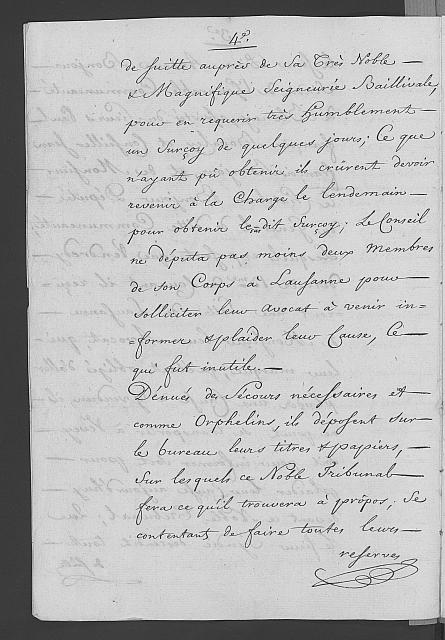 4.º
de suitte auprès de Sa Très Noble
& Magnifique Seigneurie Baillivale,
pour en requerir très humblement
un Surçoy de quelques jours; Ce que
n'ayant pû obtenir ils crûrent devoir
revenir à la Charge le lendemain
pour obtenir le susdit Surçoy; Le Conseil
ne députa pas moins deux Membres
de son Corps à Lausanne pour
Solliciter leur avocat à venir in-
=former & plaider leur Cause, Ce
qui fut inutile.
Dénués de Secours nécessaires et
comme Orphelins, ils déposent sur
le bureau leurs titres & papiers,
Sur lesquels ce Noble Tribunal
fera ce qu'il trouvera à propos; Se
contentant de faire toutes leurs
reserves